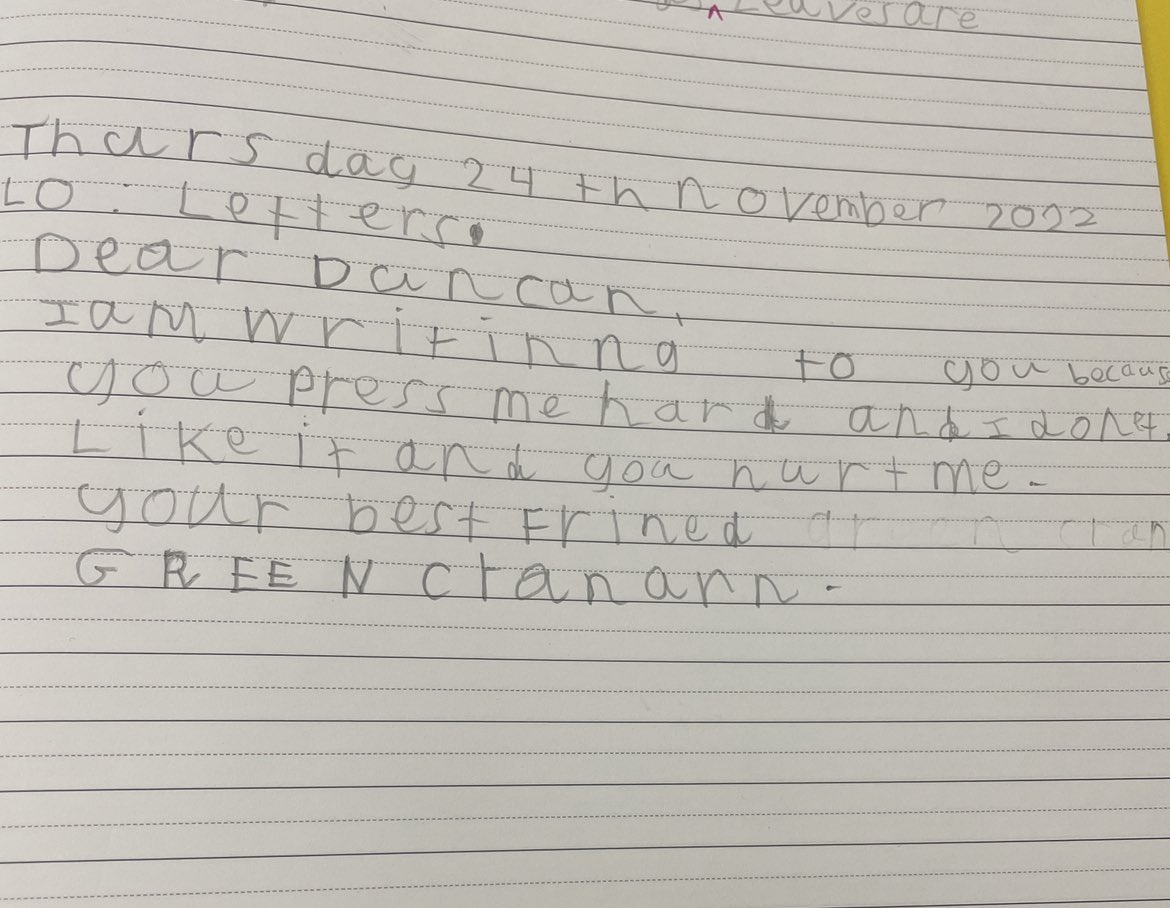 Leaves are
Thursday 24th november 2022
LO: Letters.
Dear Duncan,
I am writinng to you becaus
you press me hard and I donet
Like it and you hurt me.
your best Frined
GREEN cranann.